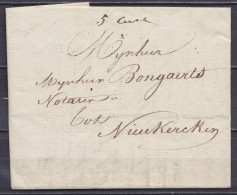 5 Cent
Mijnheer
Mijnheer Bongaerts
Notaris
Tot
Nieukercken